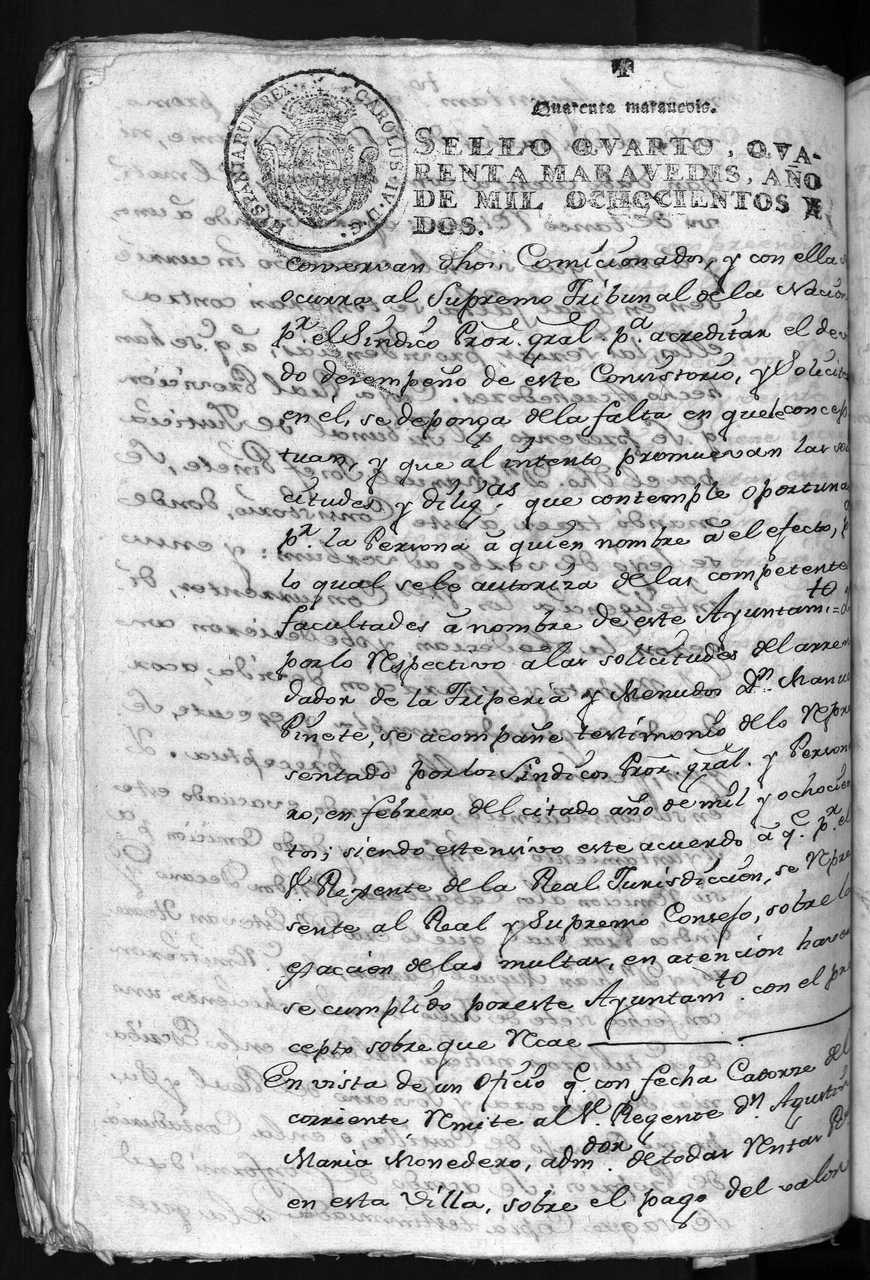 Quarenta maravedis.
HISPANIARUM REX. CAROLUS. IV. D. G.
SELLO QVARTO, QVA-
RENTA MARAVEDIS, AÑO
DE MIL OCHOCIENTOS Y
DOS.
conservan dhos. Comicionados, y con ella se
ocurra al Supremo Tribunal de la Nacion
pr. el Síndico Pror. gral. pa. acreditar el devi
do desempeño de este Consistorio, y Solicita
en el, se deponga de la falta en que le concep
tuan, y que al intento promuevan las soli
citudes y diligas. que contemple oportunas
pr. la Persona â quien nombre â el efecto, p
lo qual se le autoriza de las competentes
facultades â nombre de este Ayuntamto. = Y
por lo Respectivo a las solicitudes del arren
dador de la Triperia y Menudos Dn. Manuel
Piñete, se acompañe testimonio de lo Repre
sentado por los Síndicos Pror. gral. y Persone
ro, en febrero del citado año de mil y ochocien
tos; siendo estensivo este acuerdo â q.e pr. el
Sr. Regente de la Real Jurisdiccion, se Repre
sente al Real y Supremo Consejo, sobre la
esaccion de las multas, en atencion haverse
se cumplido por este Ayuntamto. con el pre
cepto sobre que Recae
En vista de un oficio q.e con fecha Catorze del
corriente Remite al Sr. Regente Dn. Agustin
Maria Monedero, admdor. de todas Rentas Rs.
en esta Villa, sobre el pago del valor